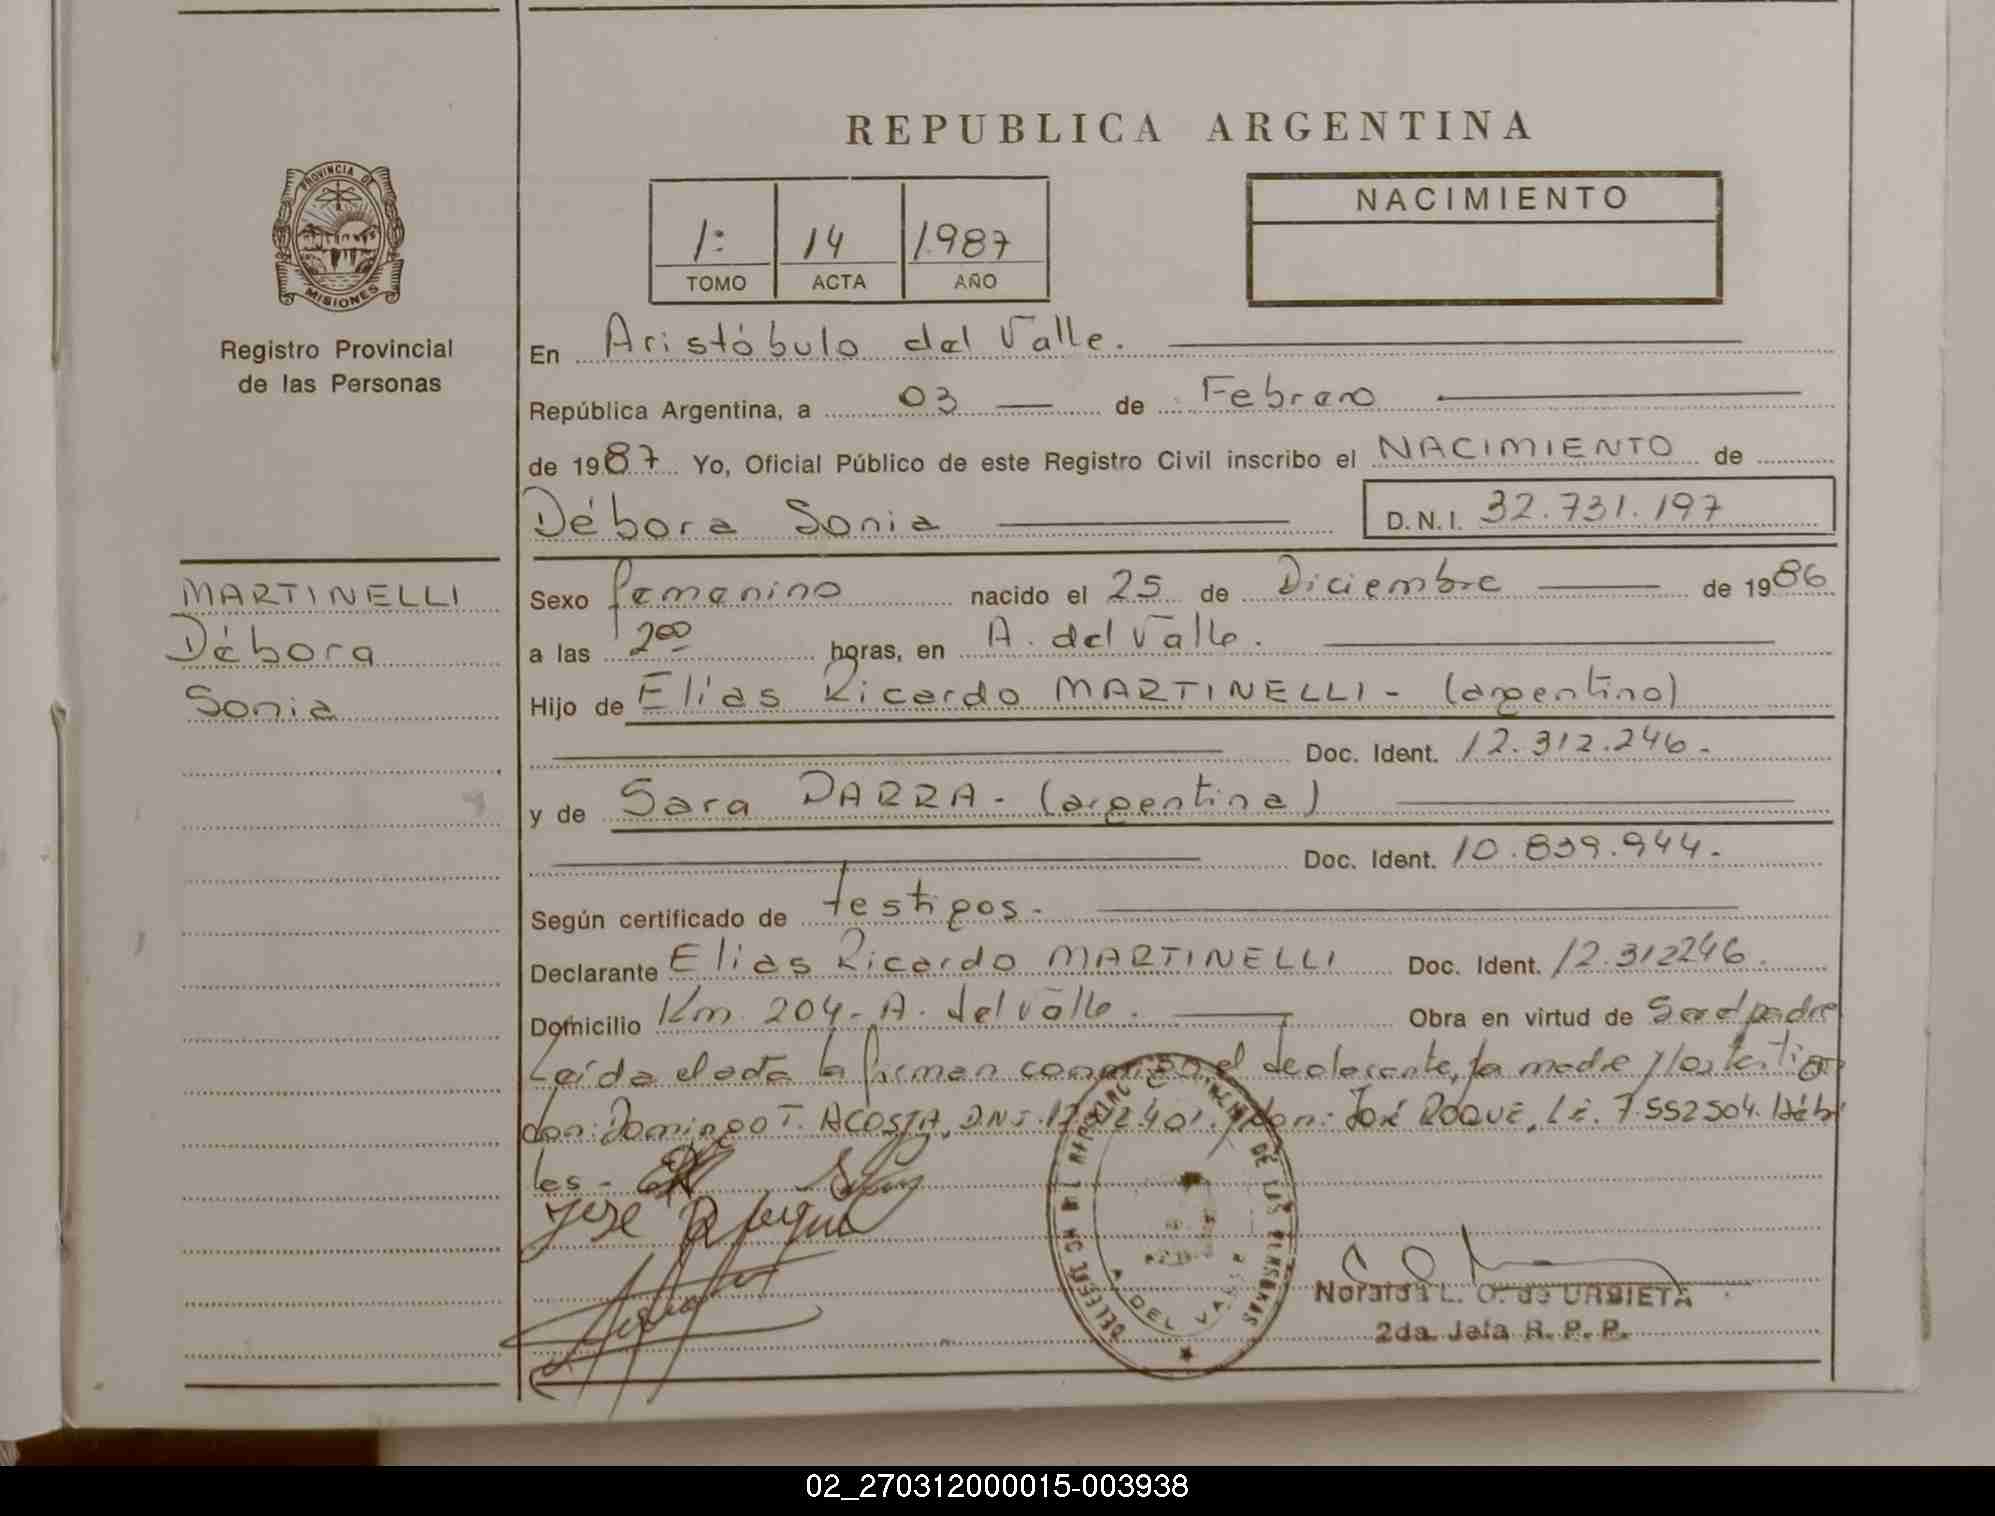 REPUBLICA ARGENTINA
PROVINCIA DE
MISIONES
Registro Provincial
de las Personas
1: TOMO
14 ACTA
1987 AÑO
NACIMIENTO
En Aristóbulo del Valle.
República Argentina, a 03 de Febrero
de 1987 Yo, Oficial Público de este Registro Civil inscribo el NACIMIENTO de
Débora Sonia D.N.I. 32.731.197
MARTINELLI
Débora
Sonia
Sexo femenino nacido el 25 de Diciembre de 1986
a las 200 horas, en A. del Valle.
Hijo de Elias Ricardo MARTINELLI - (argentino)
Doc. Ident. 12.312.246.
y de Sara DARRA - (argentina)
Doc. Ident. 10.839.944.
Según certificado de testigos.
Declarante Elias Ricardo MARTINELLI Doc. Ident. 12.312246.
Domicilio Km. 204 - A. del valle. Obra en virtud de Ser el padre
Leída el acta la firman conmigo el declarante, la madre y los testigos
don: Domingo T. ACOSTA, DNI. don: José ROQUE, L.E. 7.552504. Hábi
les -
Jose Roque
DE LAS PERSONAS
A. DEL VALLE
Noraida L. O. de URBIETA
2da. Jefa R. P. P.
02_270312000015-003938